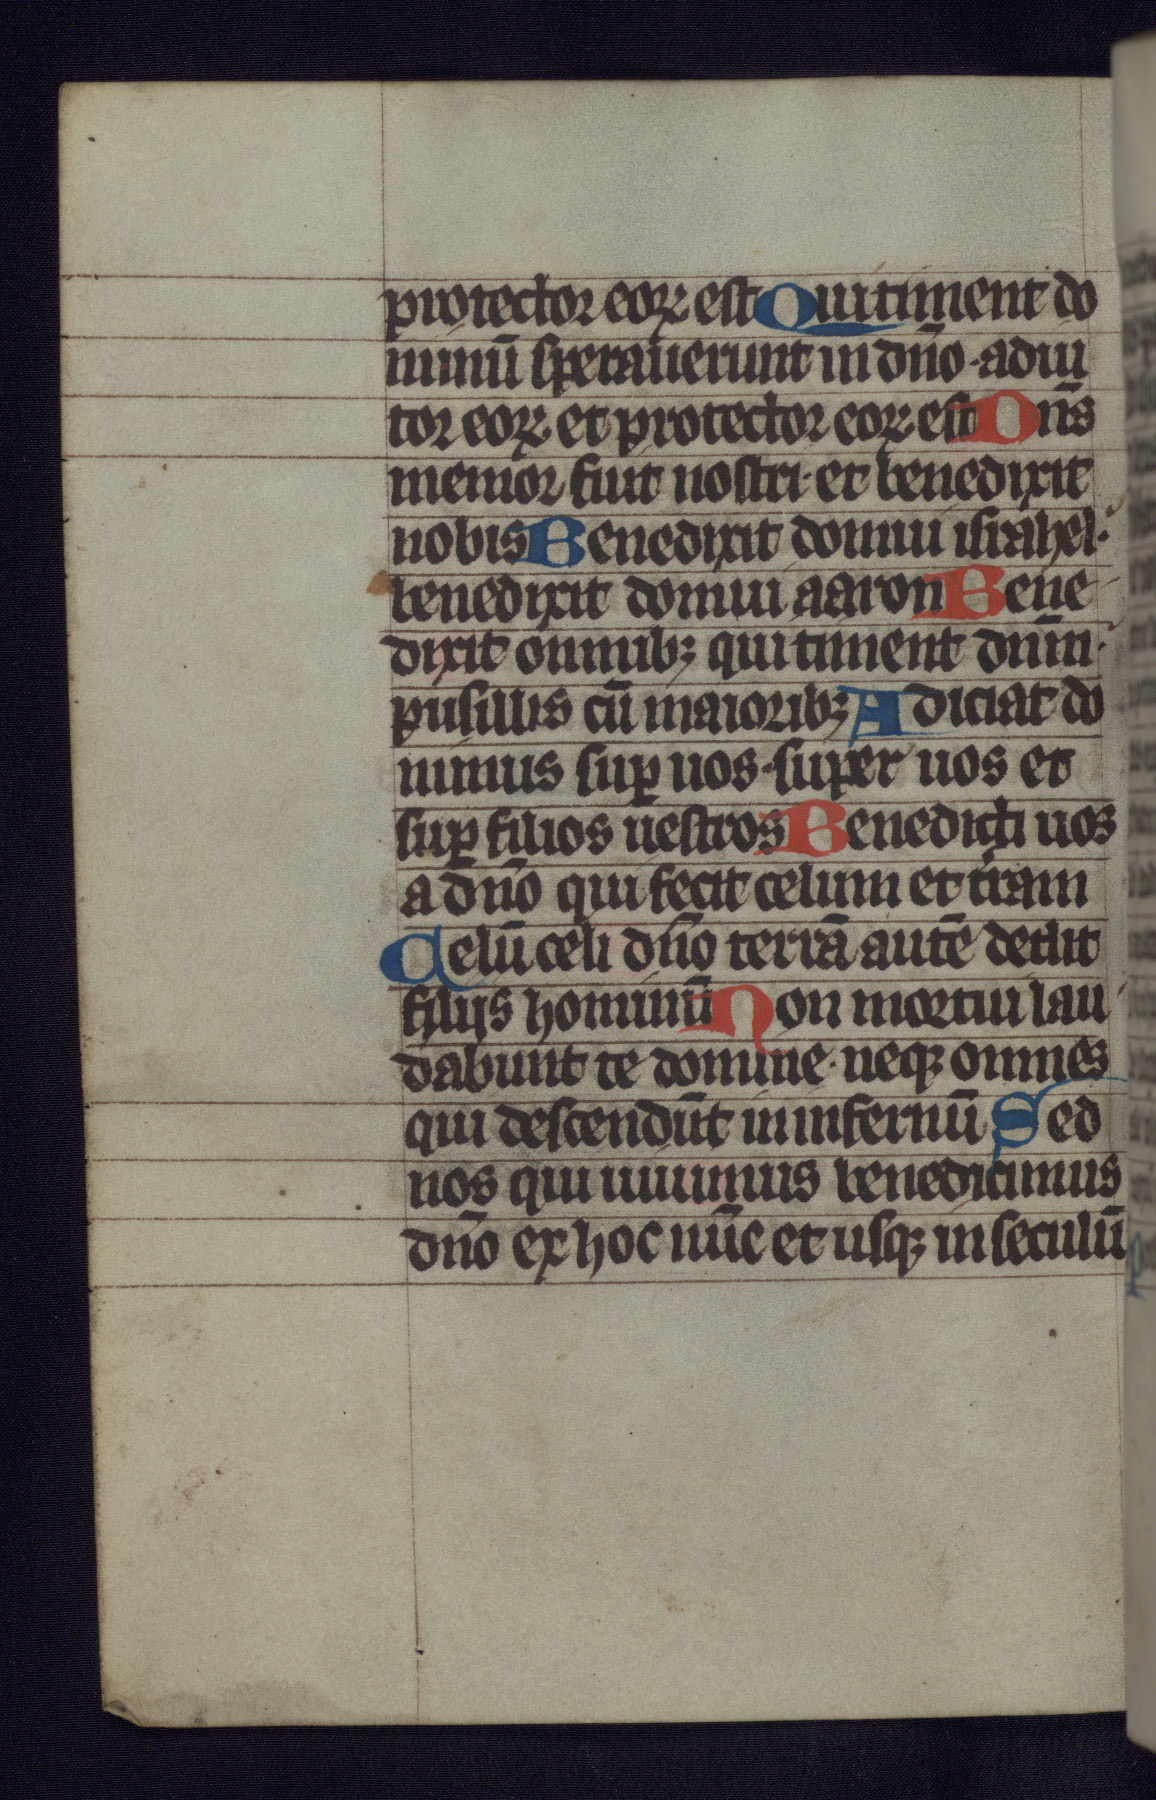 protector eoꝝ est Qui timent do
minū sperauerunt in dn̄o · adiu
tor eoꝝ et protector eoꝝ est Dn̄s
memor fuit nostri · et benedixit
nobis Benedixit domui israhel ·
benedixit domui aaron Bene
dixit omnibꝫ qui timent dnm̄ ·
pusillis cū maioribꝫ Adiciat do
minus suꝑ uos · super uos et
suꝑ filios uestros Benedicti uos
a dn̄o qui fecit celum et tͥram
Celū celi dn̄o terrā autē dedit
filijs hominū Non mortui lau
dabunt te domine · neqꝫ omnes
qui descendūt in infernū Sed
nos qui uiuimus benedicimus
dn̄o ex hoc nūc et usqꝫ in seculū